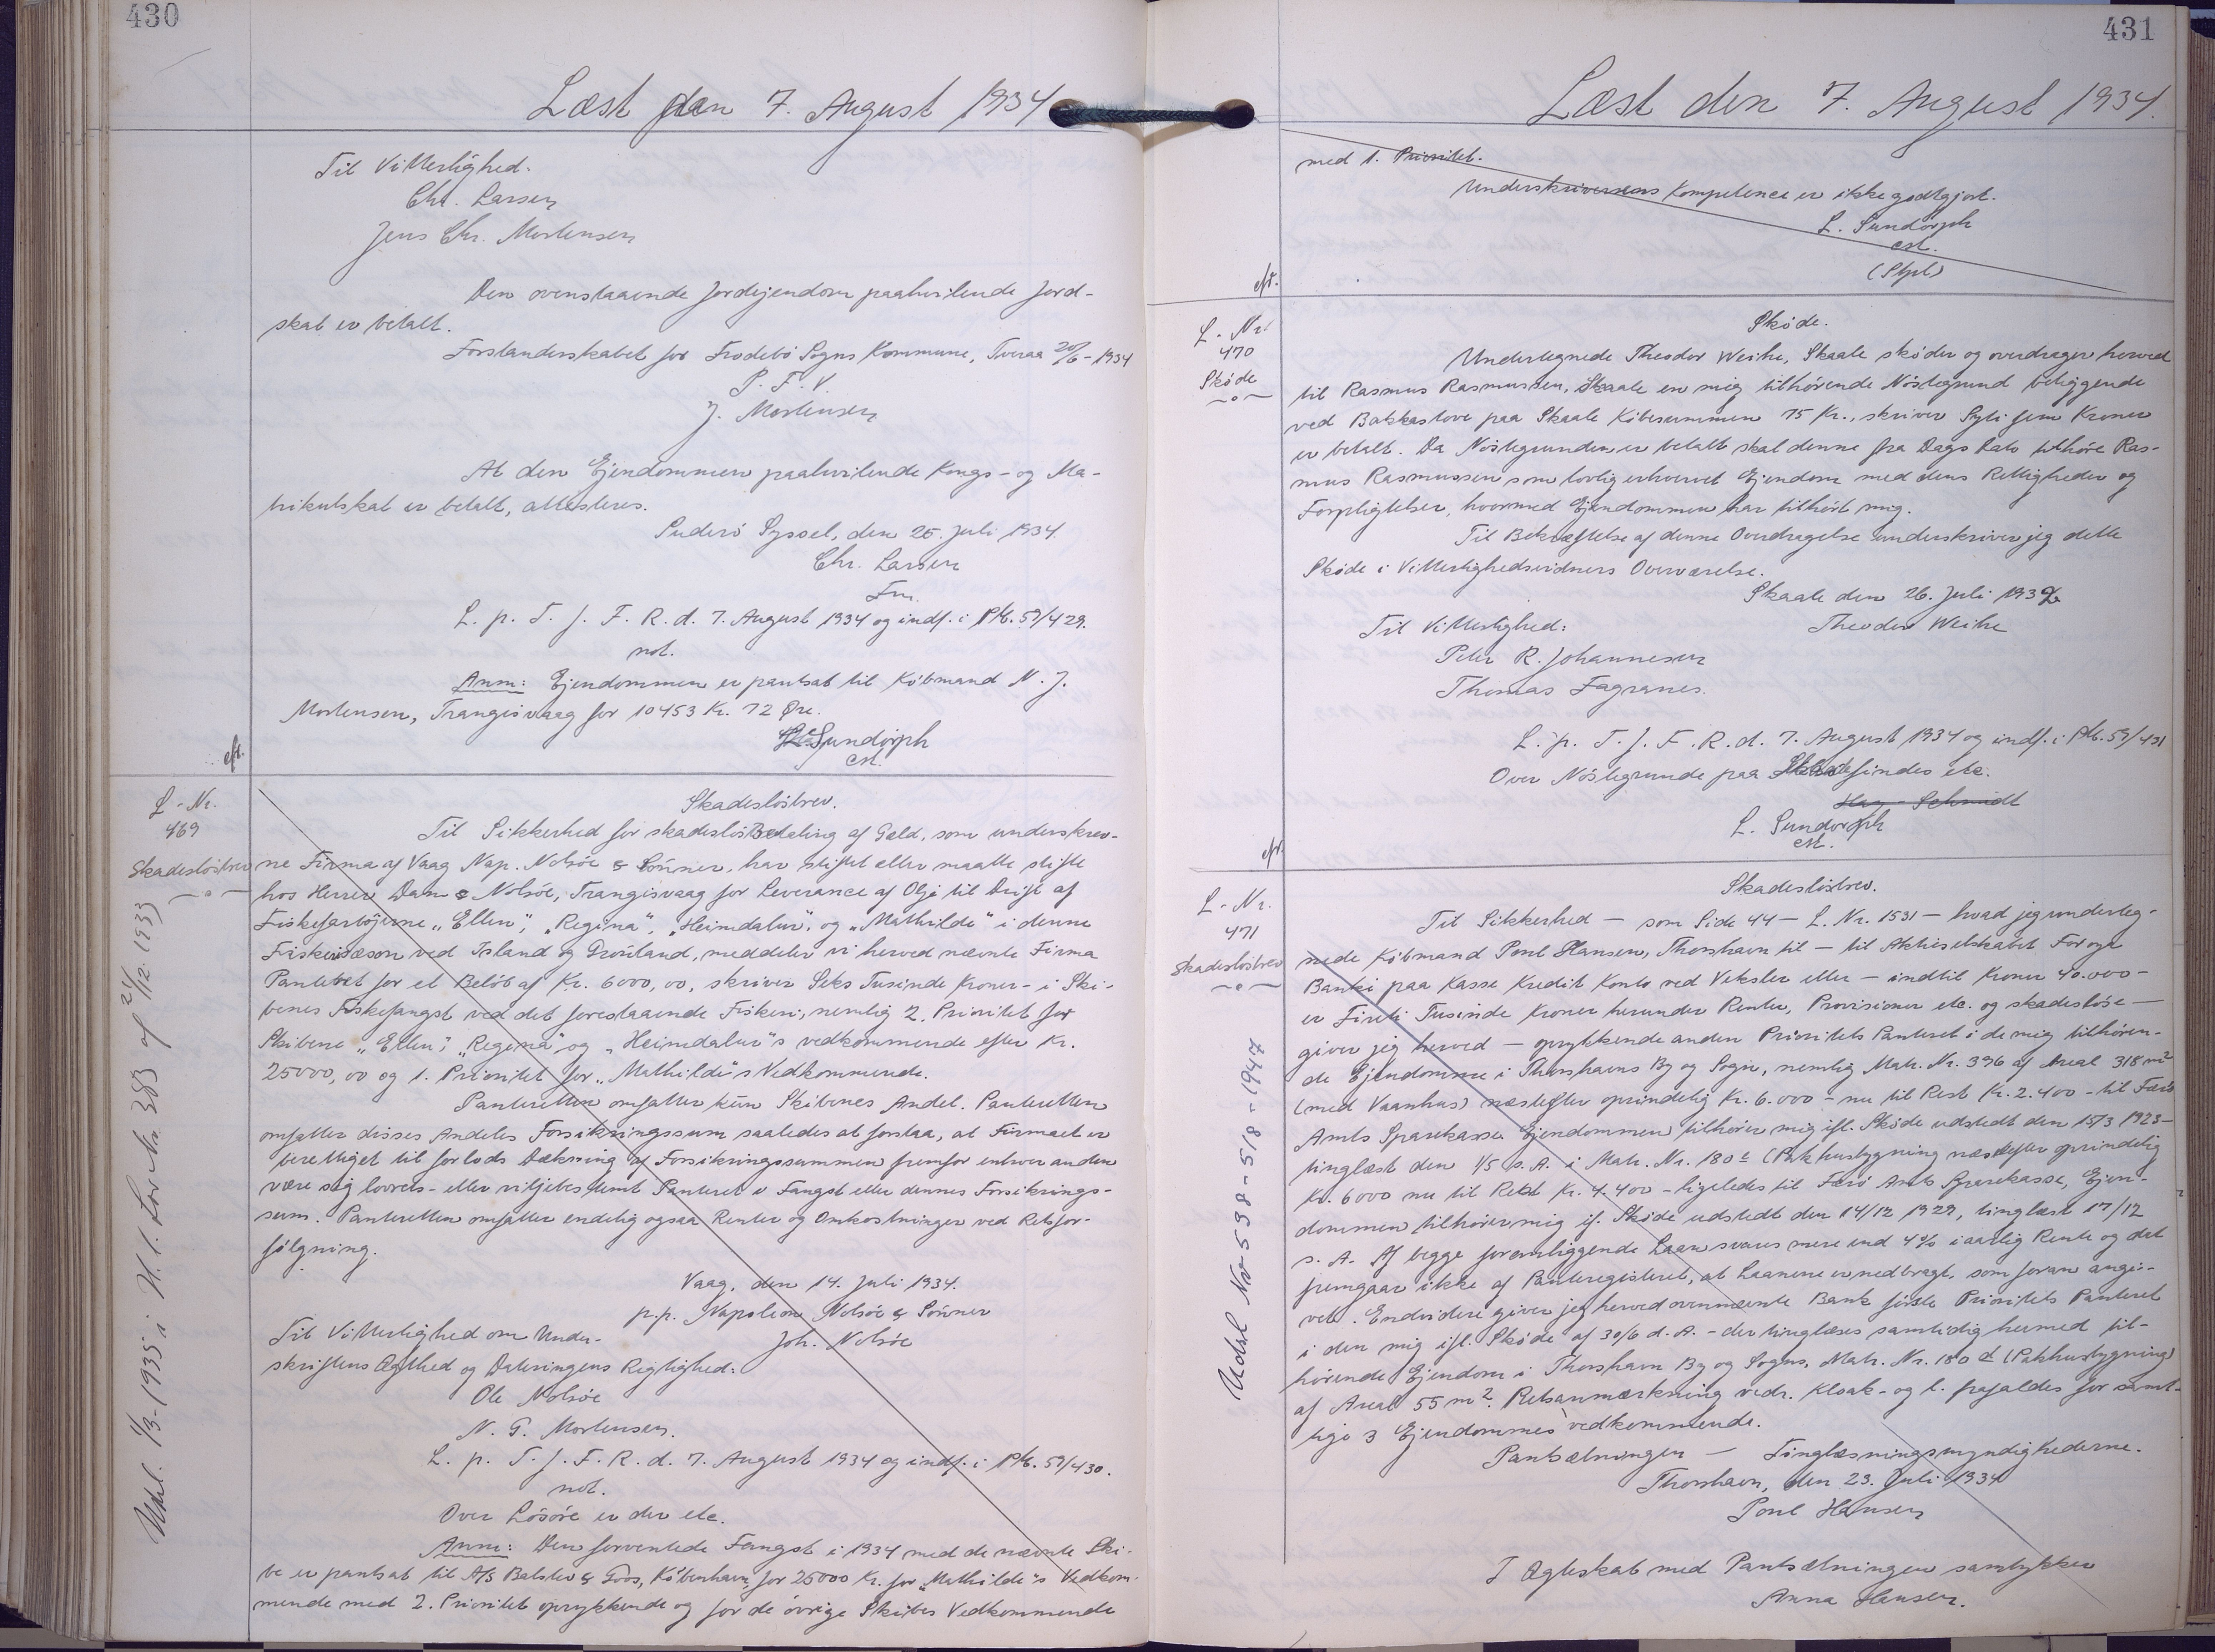 430
Læst den 7. August 1934
Til Vitterlighed.
Chr. Larsen
Jens Chr. Mortensen
Den ovenstaaende Jordejendom paahvilende Jord-
skat er betalt.
Forstanderskabet for Frodebö Sogns Kommune, Tveraa 20/6 - 1934
P. F. V.
J. Mortensen
At den Ejendommen paahvilende Kongs- og Ma-
trikulskat er betalt, attesteres.
Suderö Syssel, den 25. Juli 1934.
Chr. Larsen
Fm.
L. p. T. f. F. R. d. 7. August 1934 og indf. i Ptb. 59/429.
not.
Anm: Ejendommen er pantsat til Köbmand N. J.
Mortensen, Trangisvaag for 10453 Kr. 72 Öre.
L. Sundorph
cst.
eft.
L-Nr.
469
Skadeslösbrev
Skadeslösbrev.
Til Sikkerhed for skadeslös Betaling af Gæld, som underskrev-
ne Firma af Vaag Nap. Nolsöe & Sönner, har stiftet eller maatte stifte
hos Herrer Dam & Nolsöe, Trangisvaag for Leverance af Olje til Drift af
Fiskefartöjerne "Ellen", "Regina", "Heimdalur", og "Mathilde" i denne
Fiskerisæson ved Island og Grönland, meddeler vi herved nævnte Firma
Panteret for et Belöb af Kr. 6000,00, skriver Seks Tusinde Kroner - i Ski-
benes Fiskefangst ved det forestaaende Fiskeri, nemlig 2. Prioritet for
Skibene "Ellen", "Regina" og "Heimdalur"s vedkommende efter Kr.
25000,00 og 1. Prioritet for "Mathilde"s Vedkommende.
Panteretten omfatter kun Skibenes Andel. Panteretten
omfatter disses Andeles Forsikringssum saaledes at forstaa, at Firmaet er
berettiget til forlods Dækning af Forsikringssummen fremfor enhver anden
være sig lovens- eller viljebestemt Panteret i Fangst eller dennes Forsikrings-
sum. Panteretten omfatter endelig ogsaa Renter og Omkostninger ved Retsfor-
fölgning.
Vaag, den 14. Juli 1934.
p.p. Napoleon Nolsöe & Sönner
Joh. Nolsöe
Til Vitterlighed om Under-
skriftens Ægthed og Dateringens Rigtighed:
Ole Nolsöe
N. G. Mortensen.
L. p. T. f. F. R. d. 7. August 1934 og indf. i Ptb. 59/430.
not.
Over Lösöre er der etc.
Anm: Den forventede Fangst i 1934 med de nævnte Ski-
be er pantsat til A/S Balslev & Goos, Köbenhavn, for 25000 Kr. for "Mathilde"s Vedkom-
mende med 2. Prioritet oprykkende og for de övrige Skibes Vedkommende
Udsl. 1/3-1935 i H. t. Lov Nr 383 af 21/12 1933
431
Læst den 7. August 1934.
med 1. Prioritet.
Underskriverens Kompetence er ikke godtgjort.
L. Sundorph
cst.
(Stpl)
eft.
L-Nr.
470
Sköde
Sköde.
Undertegnede Theodor Weihe, Skaale sköder og overdrager herved
til Rasmus Rasmussen, Skaale en mig tilhörende Nöstegrund beliggende
ved Bakkastove paa Skaale Köbesummen 75 Kr., skriver Syti fem Kroner
er betalt. Da Nöstegrunden er betalt skal denne fra Dags Dato tilhöre Ras-
mus Rasmussen som lovlig erhvervet Ejendom med dens Rettigheder og
Forpligtelser, hvormed Ejendommen har tilhört mig.
Til Bekræftelse af denne Overdragelse underskriver jeg dette
Sköde i Vitterlighedsvidners Overværelse.
Skaale den 26. Juli 1934
Theodor Weihe
Til Vitterlighed:
Peter R. Johannesen
Thomas Fagranes.
L. p. T. f. F. R. d. 7. August 1934 og indf. i Ptb. 59/431
Over Nöstegrunde paa Skaale findes etc.
Hag-Schmidt
L. Sundorph
cst.
eft.
L-Nr.
471
Skadeslösbrev
Skadeslösbrev.
Til Sikkerhed — som Side 44 — L. Nr. 1531 — hvad jeg underteg-
nede Köbmand Poul Hansen, Thorshavn til — til Aktieselskabet Foroya
Banki paa Kasse Kredit Konto ved Veksler eller — indtil Kroner 40.000 —
er Fireti Tusinde Kroner herunder Renter, Provisioner etc. og skadeslöse —
giver jeg herved — oprykkende anden Prioritets Panteret i de mig tilhören-
de Ejendomme i Thorshavns By og Sogn, nemlig Matr. Nr. 396 af Areal 318 m²
(med Vaanhus) næstefter oprindelig Kr. 6.000 - nu til Rest Kr. 2.400 - til Færö
Amts Sparekasse. Ejendommen tilhörer mig ifl. Sköde udstedt den 15/3 1923 —
tinglæst den 1/5 s. A. i Matr. Nr. 180 c (Pakhusbygning næstefter oprindelig
Kr. 6000 nu til Rest Kr. 4.400 - ligeledes til Færö Amts Sparekasse, Ejen-
dommen tilhörer mig if. Sköde udstedt den 14/12 1929, tinglæst 17/12
s. A. Af begge foranliggende Laan svares mere end 4% i aarlig Rente og det
fremgaar ikke af Panteregisteret, at Laanene er nedbragt, som foran angi-
vet. Endvidere giver jeg herved ovennævnte Bank förste Prioritets Panteret
i den mig ifl. Sköde af 30/6 d. A. - der tinglæses samtidig hermed til-
hörende Ejendom i Thorshavn By og Sogns, Matr. Nr. 180 d (Pakhusbygning)
af Areal 55 m². Retsanmærkning vedr. Kloak- og l. frafaldes for samt-
lige 3 Ejendommes vedkommende.
Pantsætningen — Tinglæsningsmyndighederne.
Thorshavn, den 23. Juli 1934
Poul Hansen
I Ægteskab med Pantsætningen samtykker
Anna Hansen.
Udsl Nr 538-5/8-1947